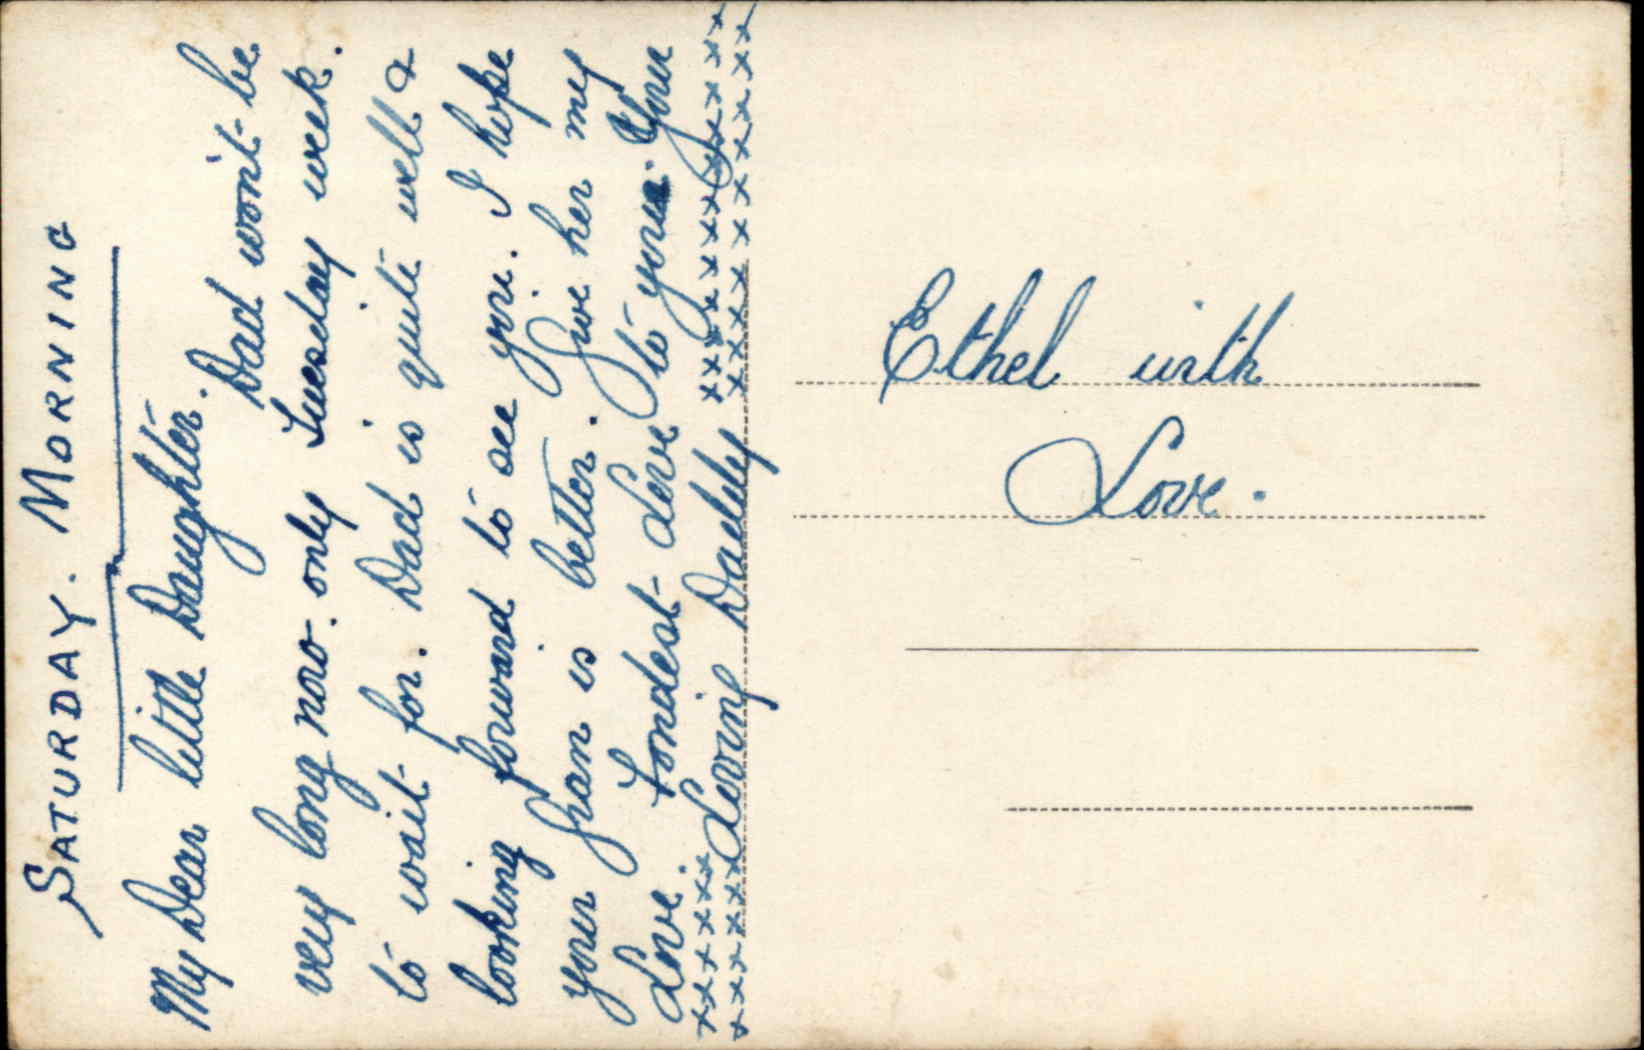 SATURDAY. MORNING
My Dear little Daughter.
Dad won't be
very long now. only Tuesday week.
to wait for. Dad is quite well &
looking forward to see you. I hope
your Gran is better. Give her my
Love. Fondest Love to you. Your
xxxxx Loving Daddy xxxxxxxxxx
xxxxxx xxxxxxxxxx
Ethel with
Love.